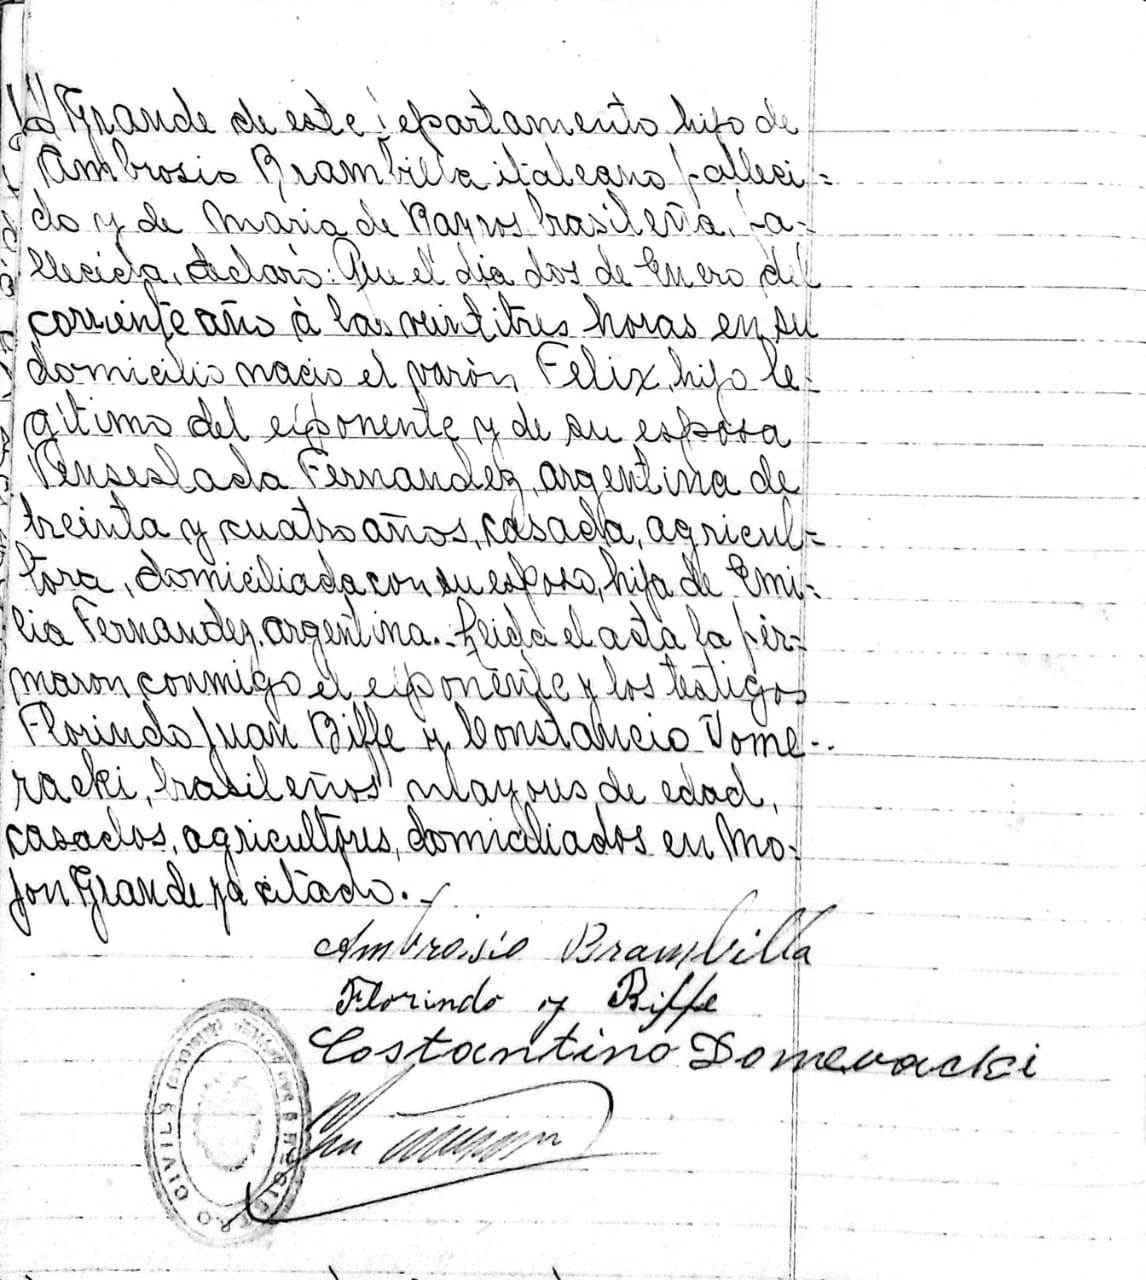 Grande de este departamento hijo de
Ambrosio Brambilla italiano falleci=
do y de Maria de Bayros brasileña, fa-
llecida, declaró: Que el dia dos de Enero del
corriente año á las veintitres horas en su
domicilio nacio el varón Felix, hijo le-
gitimo del exponente y de su esposa
Senseslada Fernandez, argentina de
treinta y cuatro años, casada, agricul=
tora, domiciliada con su esposo, hija de Emi-
lia Fernandez, argentina.- Leida el acta la fir-
maron conmigo el exponente y los testigos
Florindo Juan Biffe y Constancio Dome-
racki, brasileños mayores de edad,
casados, agricultores, domiciliados en Mo-
jon Grande ya citado.-
Ambrosio Brambilla
Florindo y Biffe
Costantino Domeracki
REGISTRO CIVIL